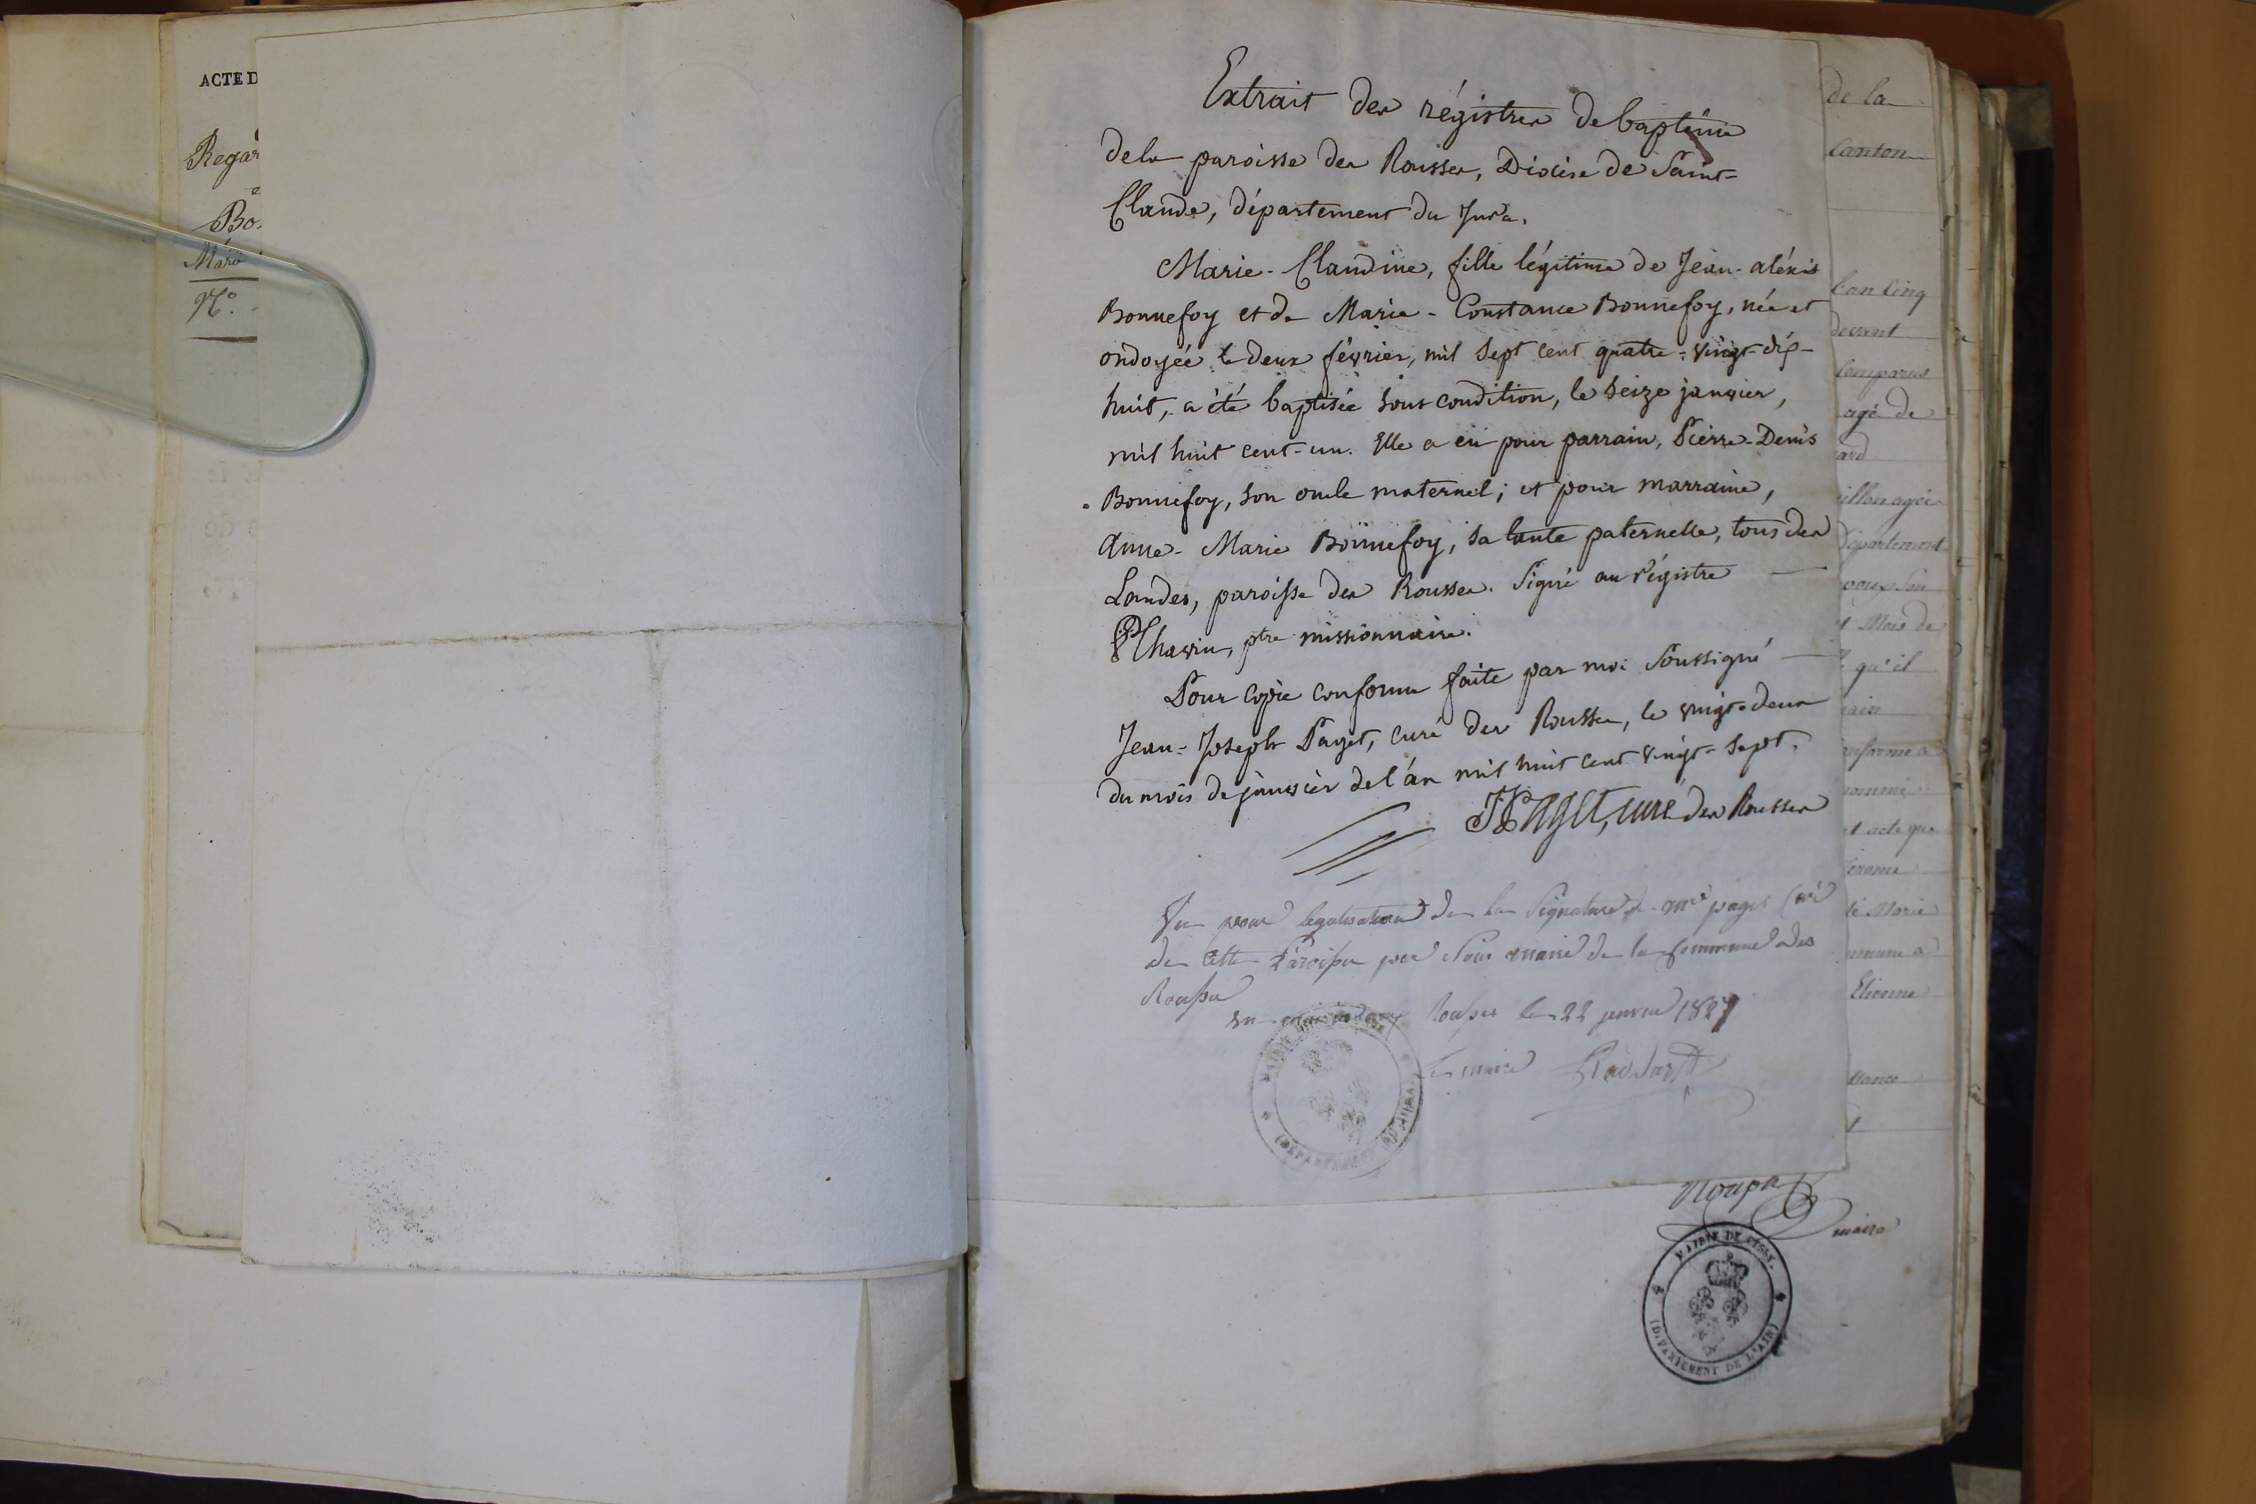 ACTE D
Regar
Bo
Mari
N.º
Extrait des régistres de baptême
de la paroisse des Rousses, Diocèse de Saint-
Claude, département du Jura.
Marie-Claudine, fille légitime de Jean-aléxis
Bonnefoy et de Marie-Constance Bonnefoy, née et
ondoyée le deux février, mil sept cent quatre-vingt-dix-
huit, a été baptisée sous condition, le seize janvier,
mil huit cent-un. Elle a eû pour parrain, Pierre-Denis
Bonnefoy, son oncle maternel; et pour marraine,
Anne-Marie Bonnefoy, sa tante paternelle, tous des
Landes, paroisse des Rousses. Signé au régistre
Thavin, ptre missionnaire.
Pour copie conforme faite par moi soussigné
Jean-Joseph Paget, curé des Rousses, le vingt-deux
du mois de janvier de l'an mil huit cent vingt-sept.
JJPaget, curé des Rousses
Vu pour légalisation de la Signature de mr paget Curé
de cette Paroisse par Nous maire de la Commune des
Rousses
En Rousses le 22 janvier 1827
Le maire
MAIRIE
(DÉPARTEMENT DU JURA)
de la
Canton
l'an cinq
devant
Comparus
agé de
ard
illon agée
Département
t Mois de
qu'il
onforme a
nommé
t acte que
Jérome
té Marie
Etienne
maire
MAIRIE DE CESSY.
(DÉPARTEMENT DE L'AIN)